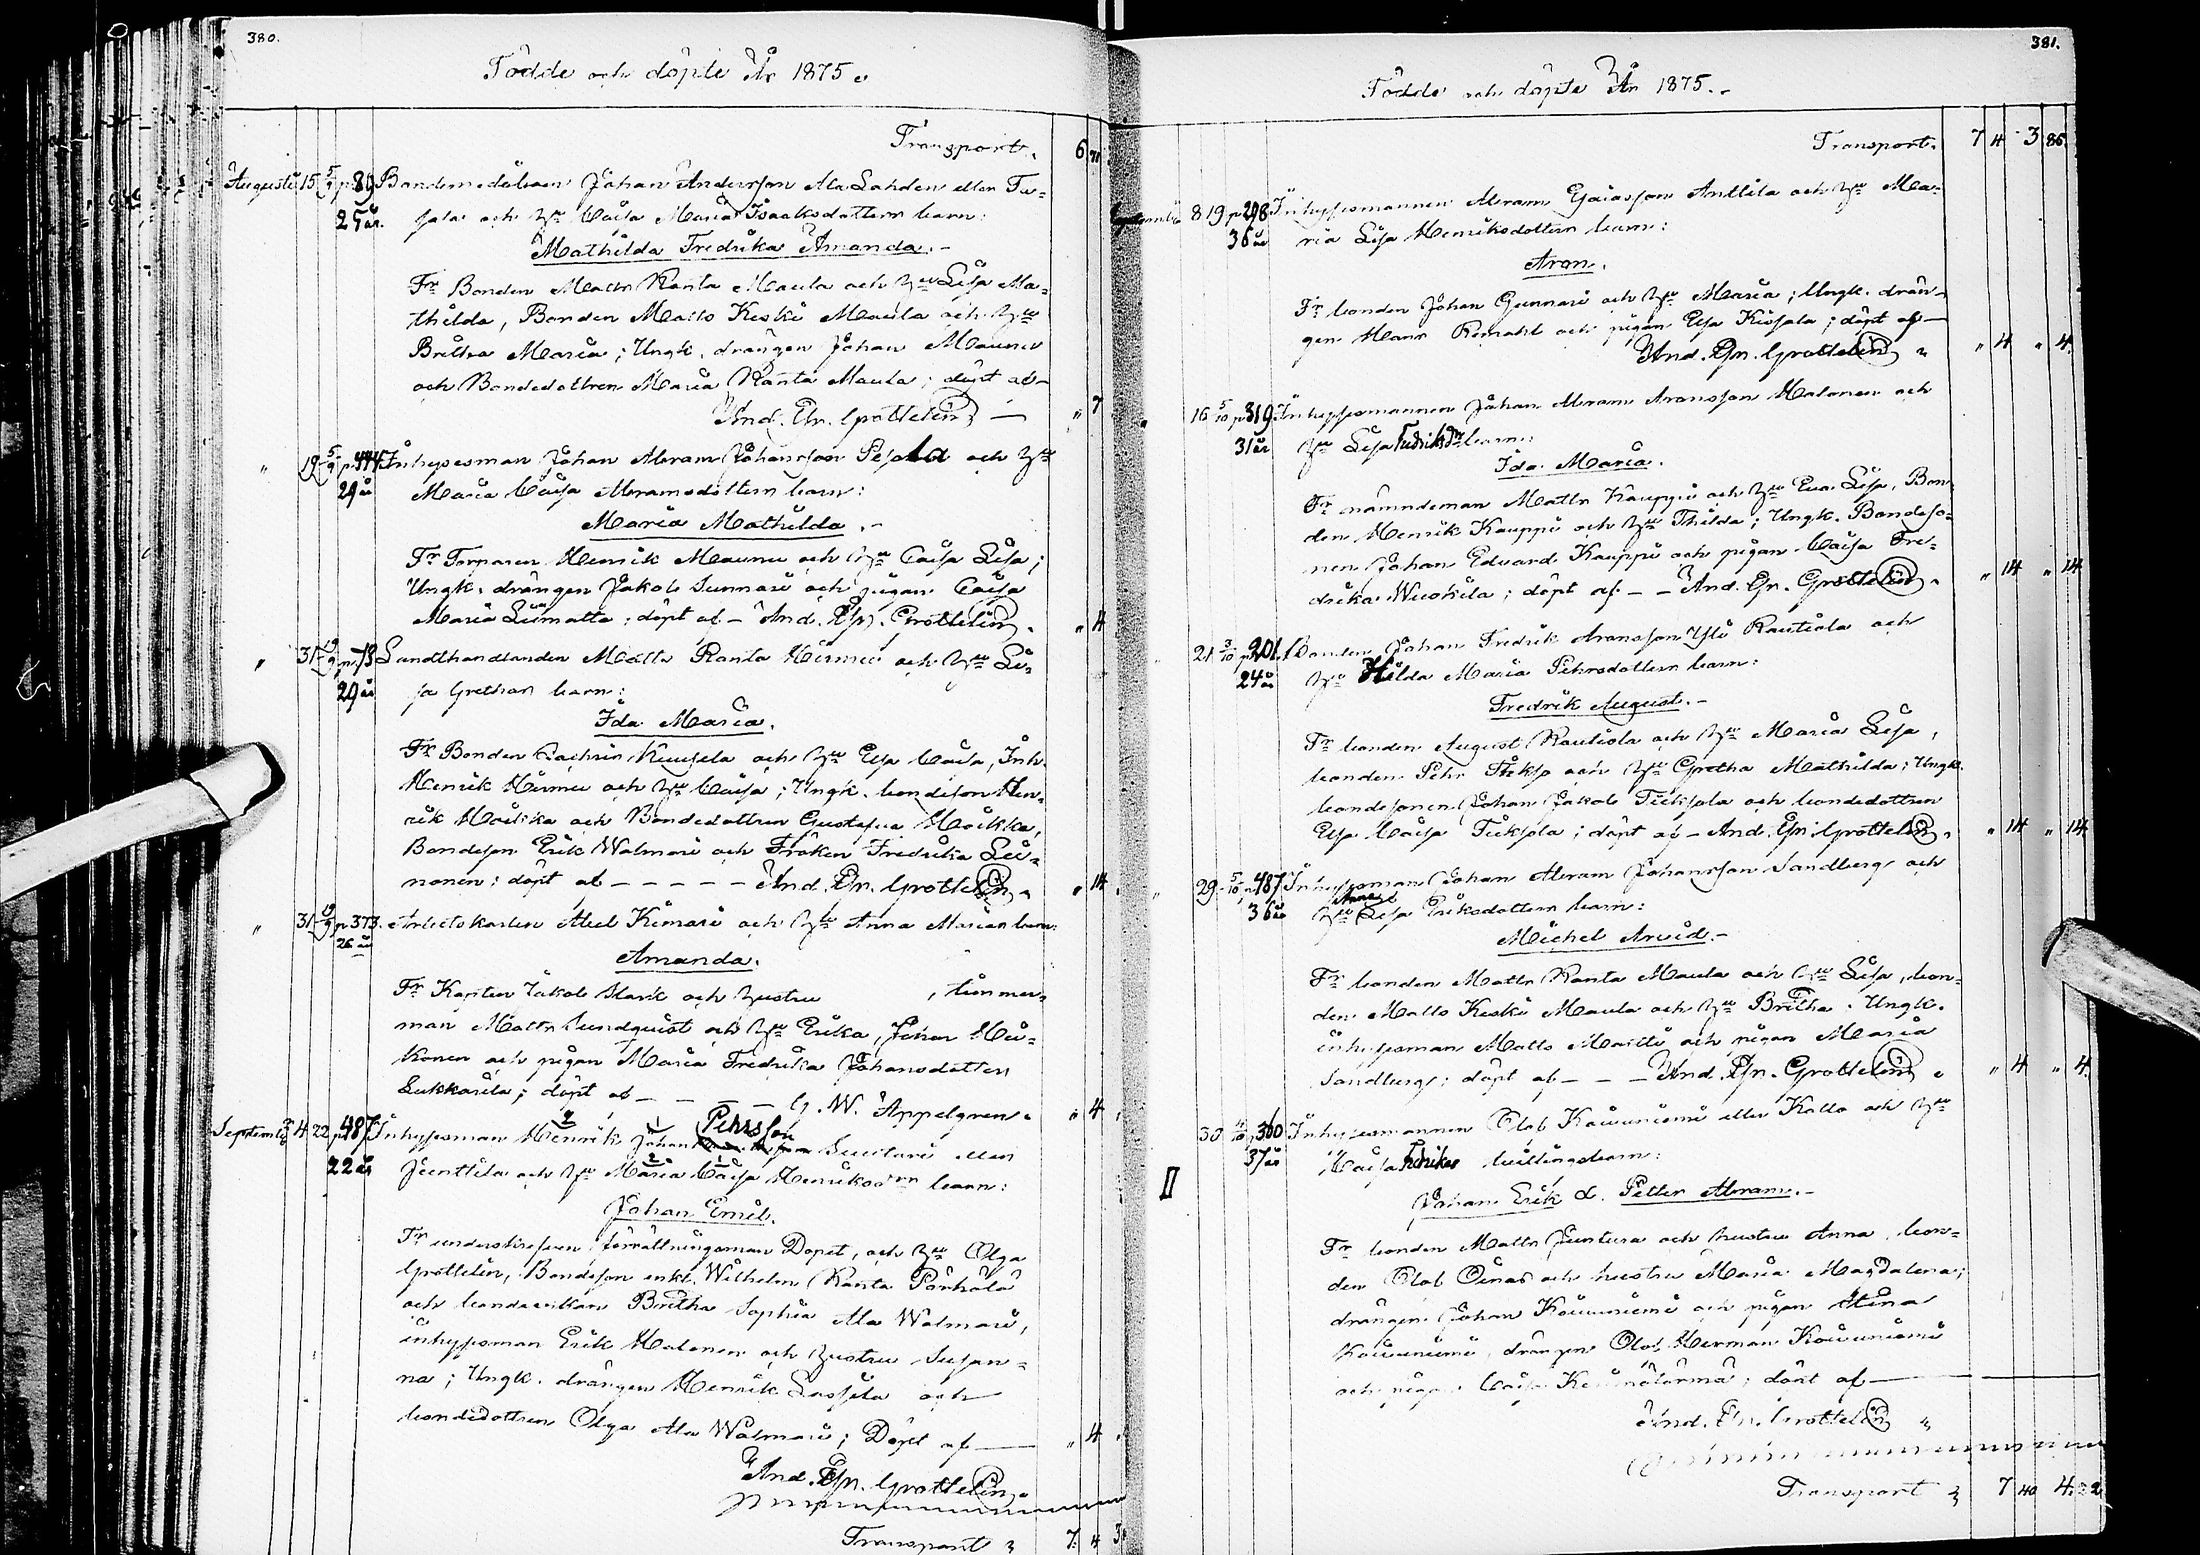 380.
Födde och döpte År 1875.
Transport.
Augusti 15 5/9 p. 89 Bondemedålaren Johan Andersson Ala Lahden eller Tu-
25 år. sala och h:u Caisa Maria Isaaksdottern barn:
Mathilda Fredrika Amanda.
Fr Bonden Matts Ranta Maula och h:u Lisa Ma-
thilda, Bonden Matts Keski Maula och h:u
Britha Maria; Ungk. drängen Johan Maunu
och Bondedottren Maria Ranta Maula; döpt af
And. Gr. Grottelin
" 7
" 19 5/9 p. 444 Inhysesman Johan Abram Johansson Pesola och h:u
29 år Maria Caisa Abramsdottern barn:
Maria Mathilda.
Fr Torparen Henrik Maunu och h:u Caisa Lisa;
Ungk. drängen Jakob Sunnari och pigan Caisa
Maria Liimatta; döpt af And. Gr. Grottelin.
" 4
" 31 19/9 p. 73 Landthandlanden Matts Ranta Hirmu och h:u Li-
29 år sa Grethan barn:
Ida Maria.
Fr Bonden Zachris Kuusela och h:u Elsa Caisa, Inh.
Henrik Hirmu och h:u Caisa; Ungk. bondeson Hen-
rik Mäkikka och Bondedottren Gustafva Mäikka,
Bondeson Erik Walmari och Fröken Fredrika Lei-
nonen; döpt af And. Gr. Grottelin.
" 14
" 31 19/9 p. 373. Arbetskarlen Abel Kimari och h:u Anna Marian barn:
26 år
Amanda.
Fr Kapten Jakob Stark och hustru , timmer-
man Matts Sundquist och h:u Erika, Johan Hei-
konen och pigan Maria Fredrika Johansdotter
Sukkarila; döpt af G. W. Appelgren.
" 4
September 4 22 p. 487 Inhysesman Henrik Johan Pehrsson Suutari eller
22 år Juntila och h:u Maria Caisa Henriksd:rn barn:
Johan Emil.
Fr underskrifven förrättningsman Dopet, och h:u Olga
Grottelin, Bondeson enkl. Wilhelm Ranta Pörhölä
och bondeenkan Britha Sophia Ala Walmari,
inhysesman Erik Halonen och hustru Susan-
na; Ungk. drängen Henrik Lassila och
bondedottren Olga Ala Walmari; Döpt af
" 4
And. Gr. Grottelin.
Transport 7. 4
381.
Födde och döpte År 1875.
Transport. 7 4 3 86
September 8 19 p 298 Inhysesmannen Abram Esaiasson Anttila och h:u Ma-
36 år ria Lisa Henriksdottern barn:
Aron.
Fr bonden Johan Gunnari och h:u Maria; Ungk. drän-
gen Hans Remahl och pigan Elsa Kissala; döpt af
And. Gr. Grottelin " 4 " 4.
16 5/10 p 319 Inhysesmannen Johan Abram Aronsson Halonen och
31 år h:u Lisa Fredriksd:rn barn:
Ida Maria.
Fr nämndeman Matts Kauppi och h:u Eva Lisa, Bon-
den Henrik Kauppi och h:u Thilda; Ungk. Bondeso-
nen Johan Edvard Kauppi och pigan Caisa Fre-
drika Wuokila; döpt af And. Gr. Grottelin. " 14 " 14
21 3/10 p 201. Bonden Johan Fredrik Aronsson Yli Rautiola och
24 år h:u Hilda Maria Pehrsdottern barn:
Fredrik August.
Fr bonden August Rautiola och h:u Maria Lisa,
bonden Pehr och h:u Gretha Mathilda; Ungk.
bondesonen Johan Jakob Tiiksola och bondedottren
Elsa Caisa Tiiksola; döpt af And. Gr. Grottelin. " 14 " 14
29 5/10 p 487 Inhysesman Johan Abram Johansson Sandberg och
36 år h:u Anna Lisa Eriksdottern barn:
Michel Arvid.
Fr bonden Matts Ranta Maula och h:u Lisa, bon-
den Matts Keski Maula och h:u Britha. Ungk.
inhysesman Matts Martti och pigan Maria
Sandberg; döpt af And. Gr. Grottelin " 4 " 4.
30 p 360 Inhysesmannen Olof Kouvuniemi eller Kallo och h:u
37 år Caisa Fredrikas tvillingsbarn:
Johan Erik d. Petter Abram.
Fr bonden Matts Juntura och hustru Anna, bon-
den Olof Oinas och hustru Maria Magdalena;
drängen Johan Kouvuniemi och pigan Stina
Kouvuniemi, drängen Olof Herman Kouvuniemi
och pigan Caisa ; döpt af
And. Gr. Grottelin
Transport 7 40 4.22